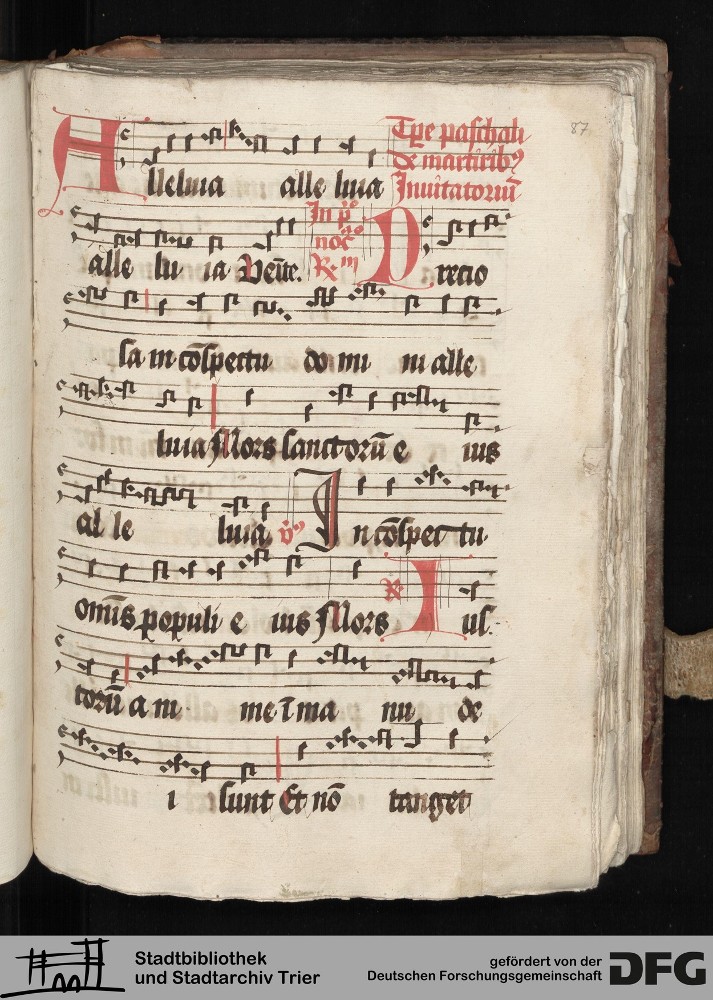 87
Tp̄e paschali
de martiribꝰ
Alleluia alle luia Inuitatoriū
In p̊
noc̄
alle lu ia Veīte. R̸m Precio
sa in cōspectu do mi ni alle
luia Mors sanctorū e ius
al le luia v̊ In cōspectu
omīs populi e ius Mors R̸ Ius
torū a ni me ī ma nu de
i sunt Et nō tanget
Stadtbibliothek
und Stadtarchiv Trier
gefördert von der
Deutschen Forschungsgemeinschaft
DFG